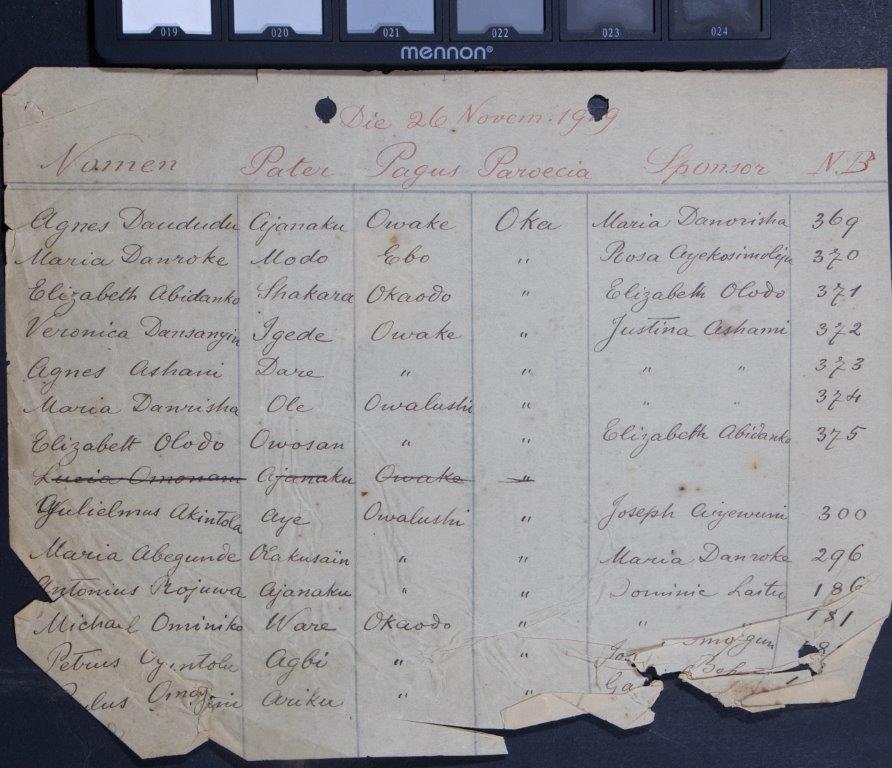 019 020 021 022 023 024
mennon®
Die 26 Novem. 19
Nomen Pater Pagus Paroecia Sponsor N.B
Agnes Daududu Ajanaku Owake Oka Maria Danorisha 369
Maria Danroke Modo Ebo " Rosa Ayekosimoliju 370
Elizabeth Abidanko Shakara Okaodo " Elizabeth Olodo 371
Veronica Dansanyin Igede Owake " Justina Ashami 372
Agnes Ashani Dare " " " " 373
Maria Danrisha Ole Owalushi " " " 374
Elizabett Olodo Owosan " " Elizabeth Abidanko 375
Lucia Omonani Ajanaku Owake "
Gulielmus Akintola Aye Owalushi " Joseph Aiyewumi 300
Maria Abegunde Olakusaïn " " Maria Danroke 296
Antonius Rojuwa Ajanaku " " Dominic Laitu 186
Michael Ominiko Ware Okaodo " " " 181
Petrus Agbi " "
Ariku " "